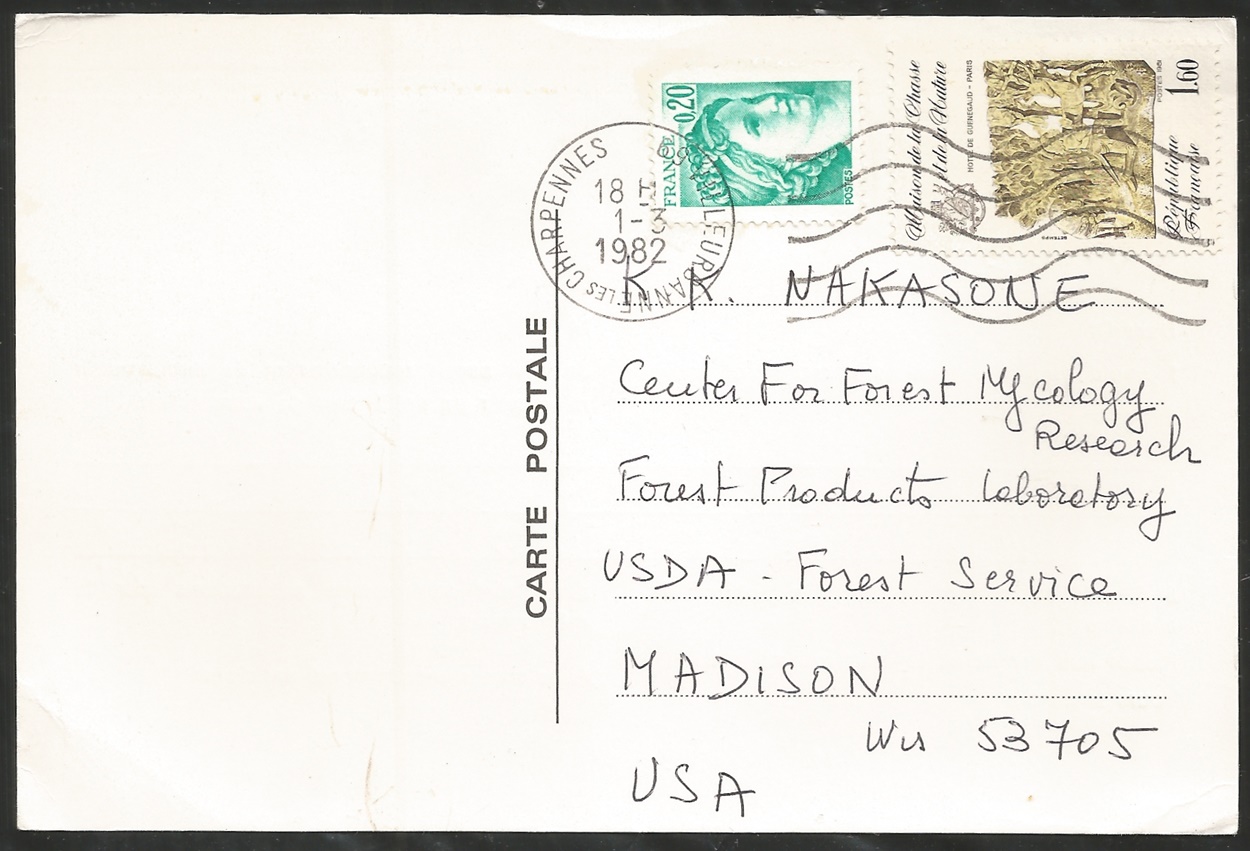 FRANCE 0,20
POSTES
Maison de la Chasse
et de la Nature
HOTEL DE GUENEGAUD - PARIS
POSTES 1981
1.60
République
Française
VILLEURBANNE-LES CHARPENNES
18 H
1-3
1982
CARTE POSTALE
K. K. NAKASONE
Center For Forest Mycology
Research
Forest Products Laboratory
USDA - Forest Service
MADISON
Wis 53705
USA